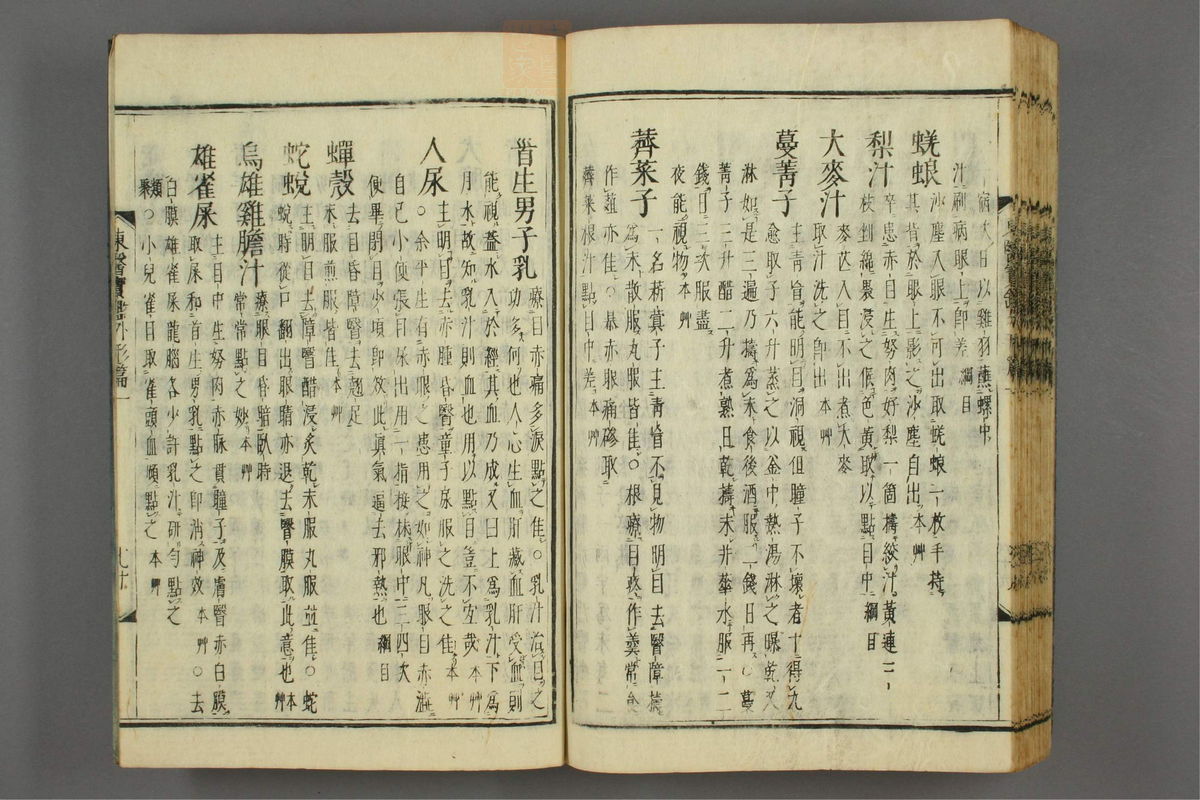 宿水日以雞羽蘸螺中
汁刷病眼上卽差 綱目
蜣蜋
沙塵入眼不可出取蜣蜋一枚手持
其背於眼上影之沙塵自出 本艸
梨汁
卒患赤目生努肉好梨一箇擣絞汁黃連三
枝剉綿裹浸之候色黃取以點目中 綱目
大麥汁
麥芒入目不出煮大麥
取汁洗之卽出 本艸
蔓菁子
主靑盲能明目洞視但瞳子不壞者十得九
愈取子六升蒸之以釜中熱湯淋之曝乾又
淋如是三遍乃擣爲末食後酒服二錢日再○蔓
菁子三升醋二升煮熟日乾擣末井華水服一二
錢日三次服盡
夜能視物 本艸
薺菜子
一名菥蓂子主靑盲不見物明目去瞖障擣
爲末散服丸服皆佳○根療目疼作羹常食
作虀亦佳○暴赤眼痛磣取
薺菜根汁點目中差 本艸
首生男子乳
療目赤痛多淚點之佳○乳汁治目之
功多何也人心生血肝藏血肝受血則
能視盖水入於經其血乃成又曰上爲乳汁下爲
月水故知乳汁則血也用以點目豈不宜哉 本艸
人尿
主明目去赤腫昏瞖童子尿服之洗之佳 本艸
○余平生有赤眼之患用之如神凡眼目赤澁
自己小便張目尿出用一指接抹眼中三四次
便畢閉目少頃卽效此眞氣逼去邪熱也 綱目
蟬殼
去目昏障瞖去翅足
末服煎服皆佳 本艸
蛇蛻
主明目去障瞖醋浸炙乾末服丸服並佳○蛇
蛻時從口翻出眼睛亦退去瞖膜取此意也 本艸
烏雄雞膽汁
療眼目昏暗臥時
常常點之妙 本艸
雄雀屎
主目中生努肉赤脉貫瞳子及膚瞖赤白膜
取屎和首生男乳點之卽消神效 本艸 ○去
目白膜雄雀屎龍腦各少許乳汁硏勻點之
類聚○小兒雀目取雀頭血頻點之 本艸
東醫寶鑑外形篇一